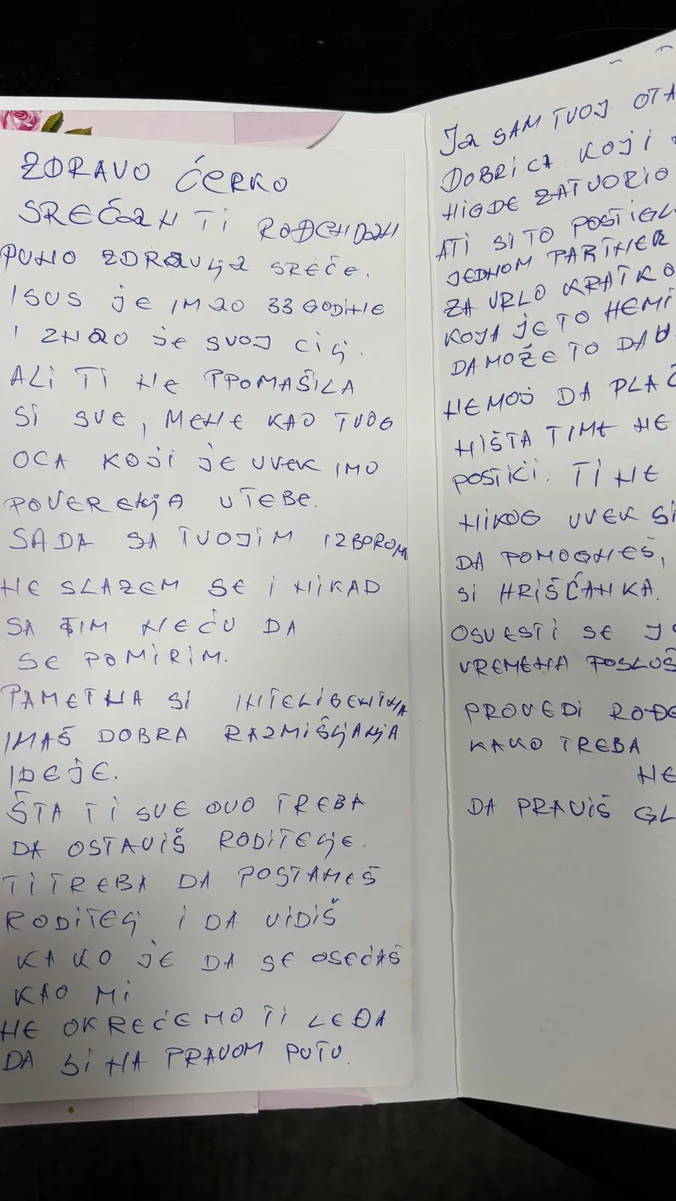 ZDRAVO ĆERKO
SREČAN TI ROĐENDAN
PUNO ZDRAVLJA SREĆE.
ISUS JE IMAO 33 GODINE
I ZNAO JE SVOJ CILJ.
ALI TI NE PPOMAŠILA
SI SVE, MENE KAO TVOG
OCA KOJI JE UVEK IMO
POVERENJA U TEBE.
SADA SA TVOJIM IZBOROM
NE SLAZEM SE I NIKAD
SA TIM NEĆU DA
SE POMIRIM.
PAMETNA SI INTELIGENTNA
IMAŠ DOBRA RAZMIŠLJANJA
IDEJE.
ŠTA TI SVE OVO TREBA
DA OSTAVIŠ RODITELJE.
TI TREBA DA POSTANEŠ
RODITELJ I DA VIDIŠ
KAKO JE DA SE OSEĆAŠ
KAO MI
NE OKREĆEMO TI LEĐA
DA SI NA PRAVOM PUTU.
JA SAM TVOJ OTA
DOBRICA KOJI
NIGDE ZATVORIO
A TI SI TO POSTIGL
JEDNOM PARTNER
ZA VRLO KRATKO
KOJA JE TO NEMI
DA MOŽE TO DA U
NEMOJ DA PLAČ
NIŠTA TIME NE
POSTIĆI. TI NE
NIKOG UVEK SI
DA POMOGNEŠ,
SI HRIŠĆANKA.
OSVESTI SE
VREMENA POSLUŠ
PROVEDI ROĐE
KAKO TREBA
NE
DA PRAVIŠ GL